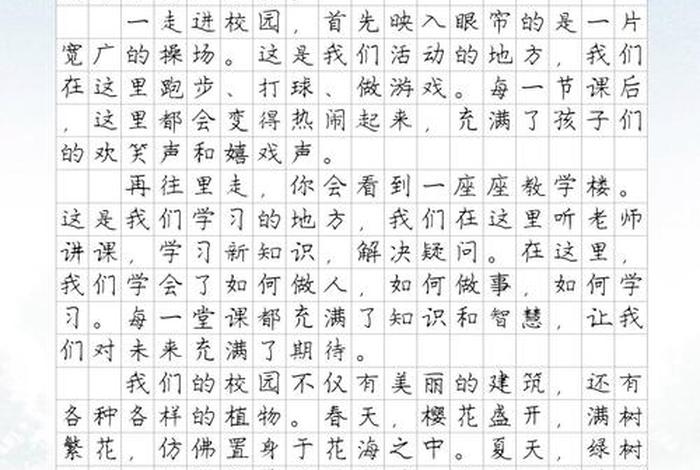 一走进校园，首先映入眼帘的是一片
宽广的操场。这是我们活动的地方，我们
在这里跑步、打球、做游戏。每一节课后
，这里都会变得热闹起来，充满了孩子们
的欢笑声和嬉戏声。
再往里走，你会看到一座座教学楼。
这是我们学习的地方，我们在这里听老师
讲课，学习新知识，解决疑问。在这里，
我们学会了如何做人，如何做事，如何学
习。每一堂课都充满了知识和智慧，让我
们对未来充满了期待。
我们的校园不仅有美丽的建筑，还有
各种各样的植物。春天，樱花盛开，满树
繁花，仿佛置身于花海之中。夏天，绿树